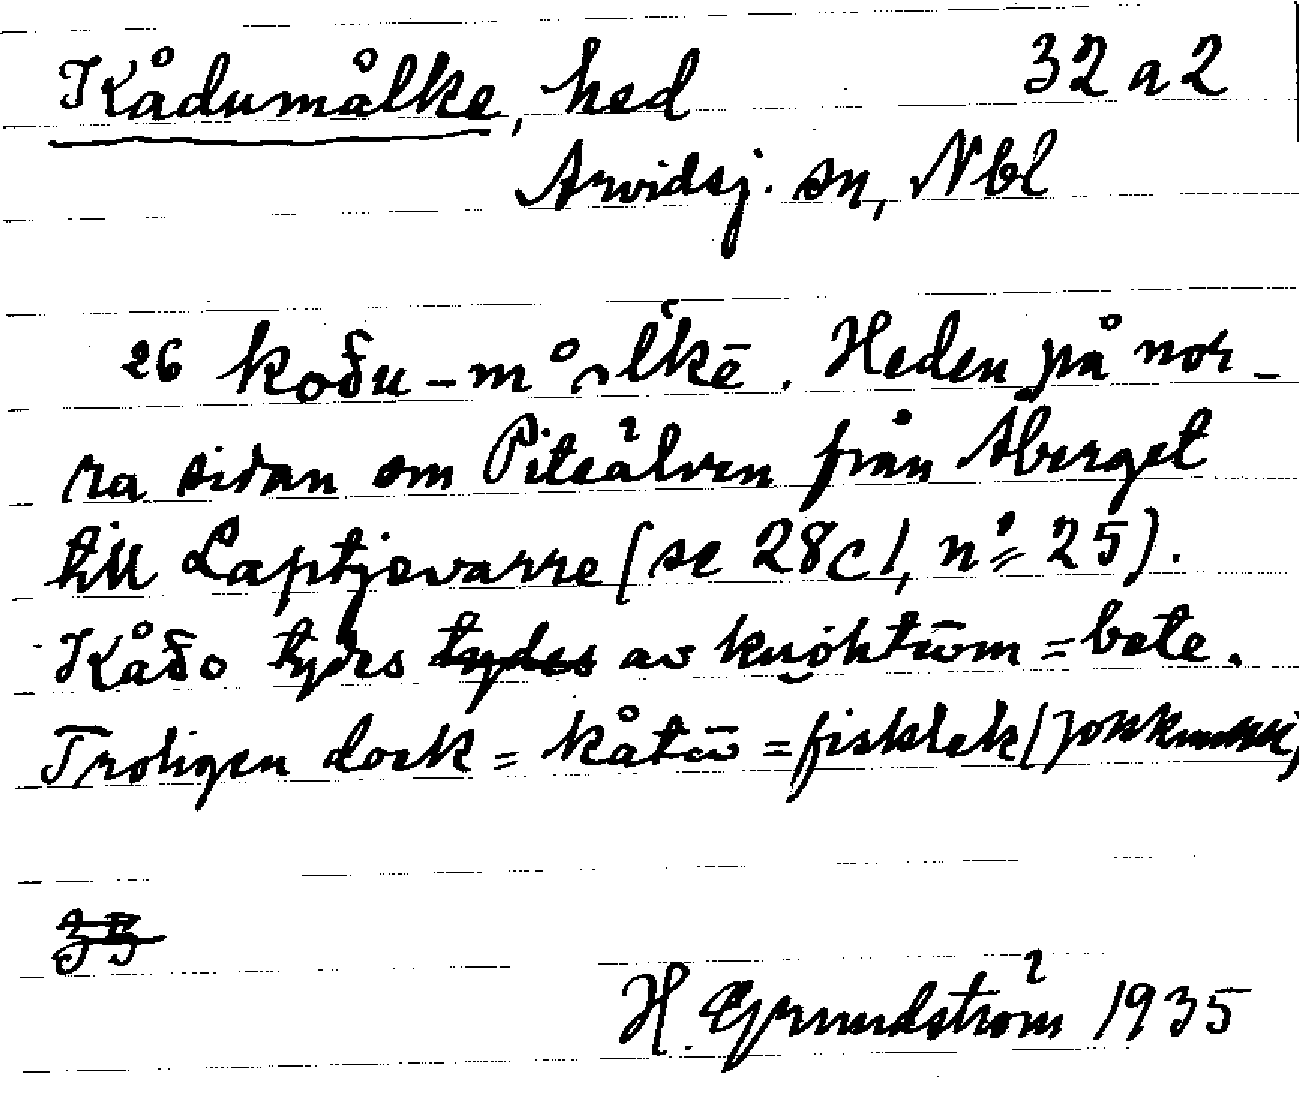 Kådumålke, hed 32 a 2
Arvidsj. sn, Nbl
26 kođu-må̀lkē. Heden på nor-
ra sidan om Piteälven från Åberget
till Laptjevarre (se 28 c 1, nº 25).
Kåđo tydes tydes av = bete.
Troligen dock = kåtū = fisklek (Jokkmokk)
33
H. Grundström 1935